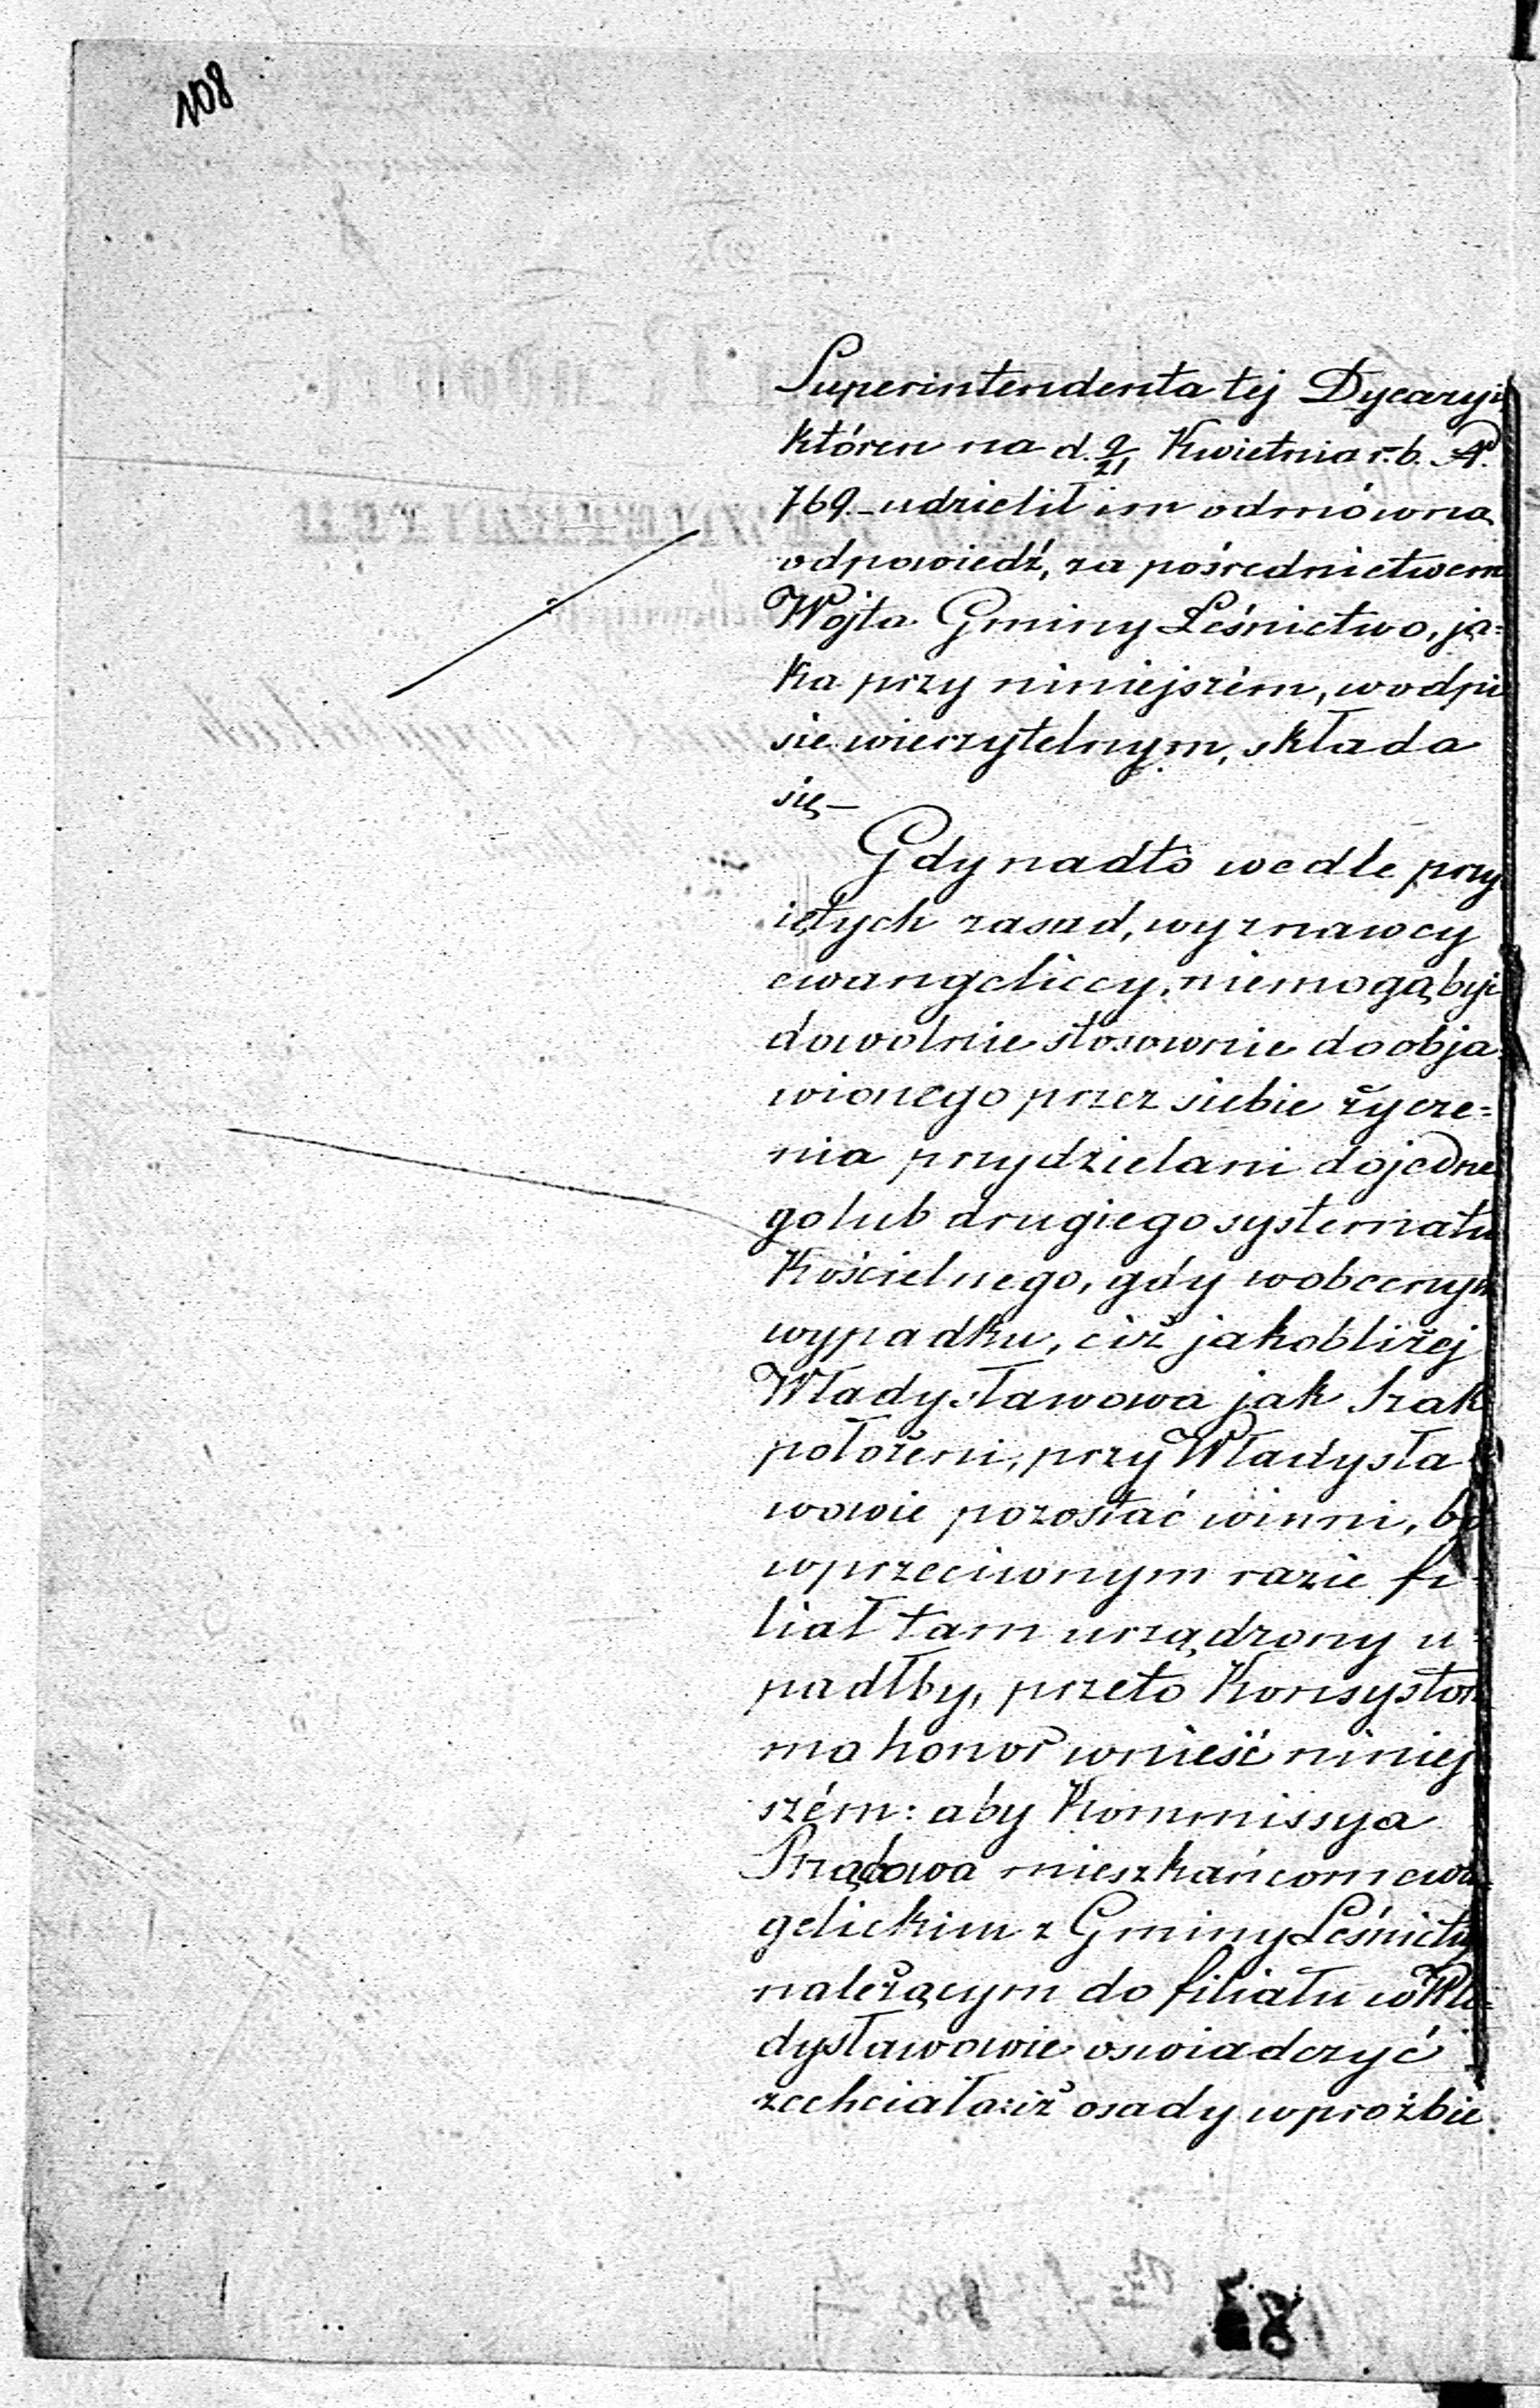 108
Superintendenta tej Dyecezyi
któren na d. 9/21 Kwietnia r. b. N.
769 - udzielił im odmówną
odpowiedź, za pośrednictwem
Wójta Gminy Leśnictwo, ja=
ka przy niniejszém, w odpi
sie wierzytelnym, składa
się -
Gdy nadto wedle przy
iętych zasad, wyznawcy
ewangeliccy, niemogą być
dowolnie stosownie do obja
wionego przez siebie życze=
nia przydzielani do jedne
go lub drugiego systematu
Kościelnego, gdy w obecnym
wypadku, ciż jako bliżej
Władysławowa jak Izak
położeni, przy Władysła
wowie pozostać winni, bo
w przeciwnym razie fi=
liał tam urządzony u=
padłby, przeto Konsystorz
ma honor wnieść niniej
szém: aby Kommissya
Rządowa mieszkańcom ewa=
gelickim z Gminy Leśnictw
należącym do filiału w Wła=
dysławowie oswiadczyć
zechciała iż osady w prożbie